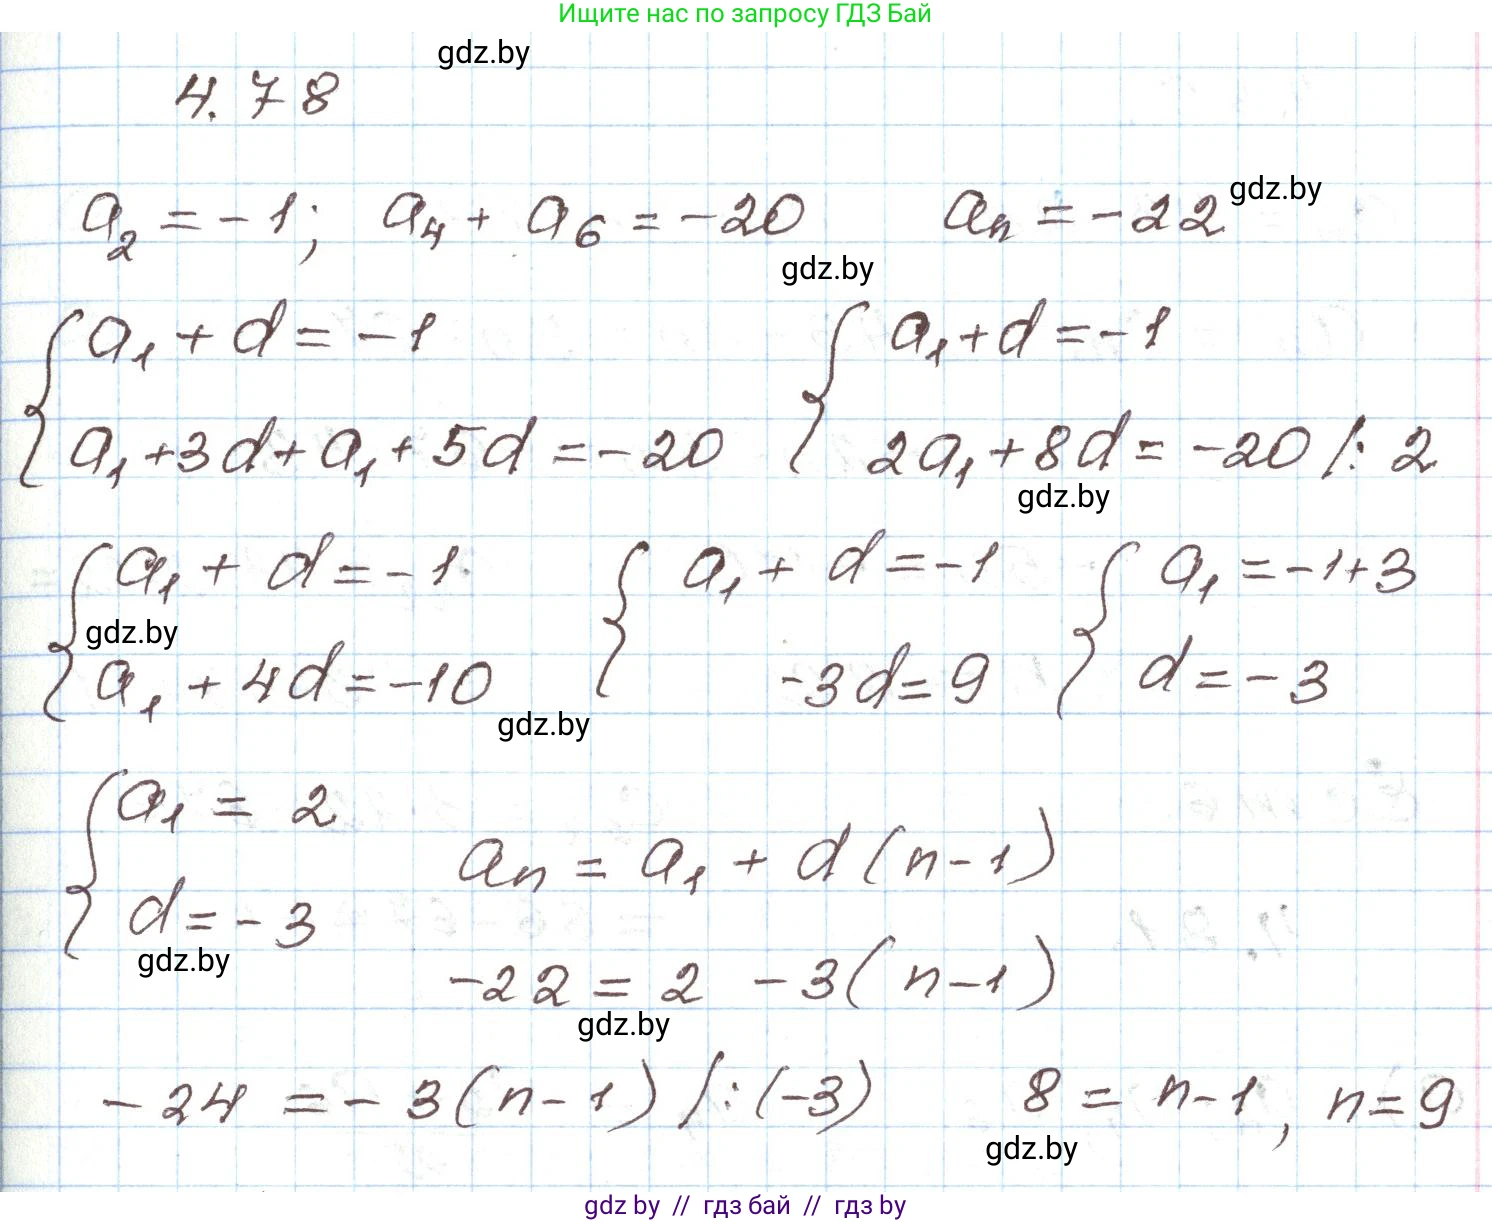 Ищите нас по запросу ГДЗ Бай
gdz.by
4.78
a₂ = -1; a₄ + a₆ = -20 aₙ = -22 gdz.by
gdz.by
{ a₁ + d = -1 { a₁ + d = -1
a₁ + 3d + a₁ + 5d = -20 2a₁ + 8d = -20 /: 2
gdz.by
{ a₁ + d = -1 { a₁ + d = -1 { a₁ = -1+3
gdz.by
a₁ + 4d = -10 -3d = 9 d = -3
gdz.by
{ a₁ = 2
aₙ = a₁ + d(n-1)
d = -3
gdz.by
-22 = 2 -3(n-1)
gdz.by
-24 = -3(n-1) /:(-3) 8 = n-1, n=9
gdz.by
gdz by // гдз бай // гдз by